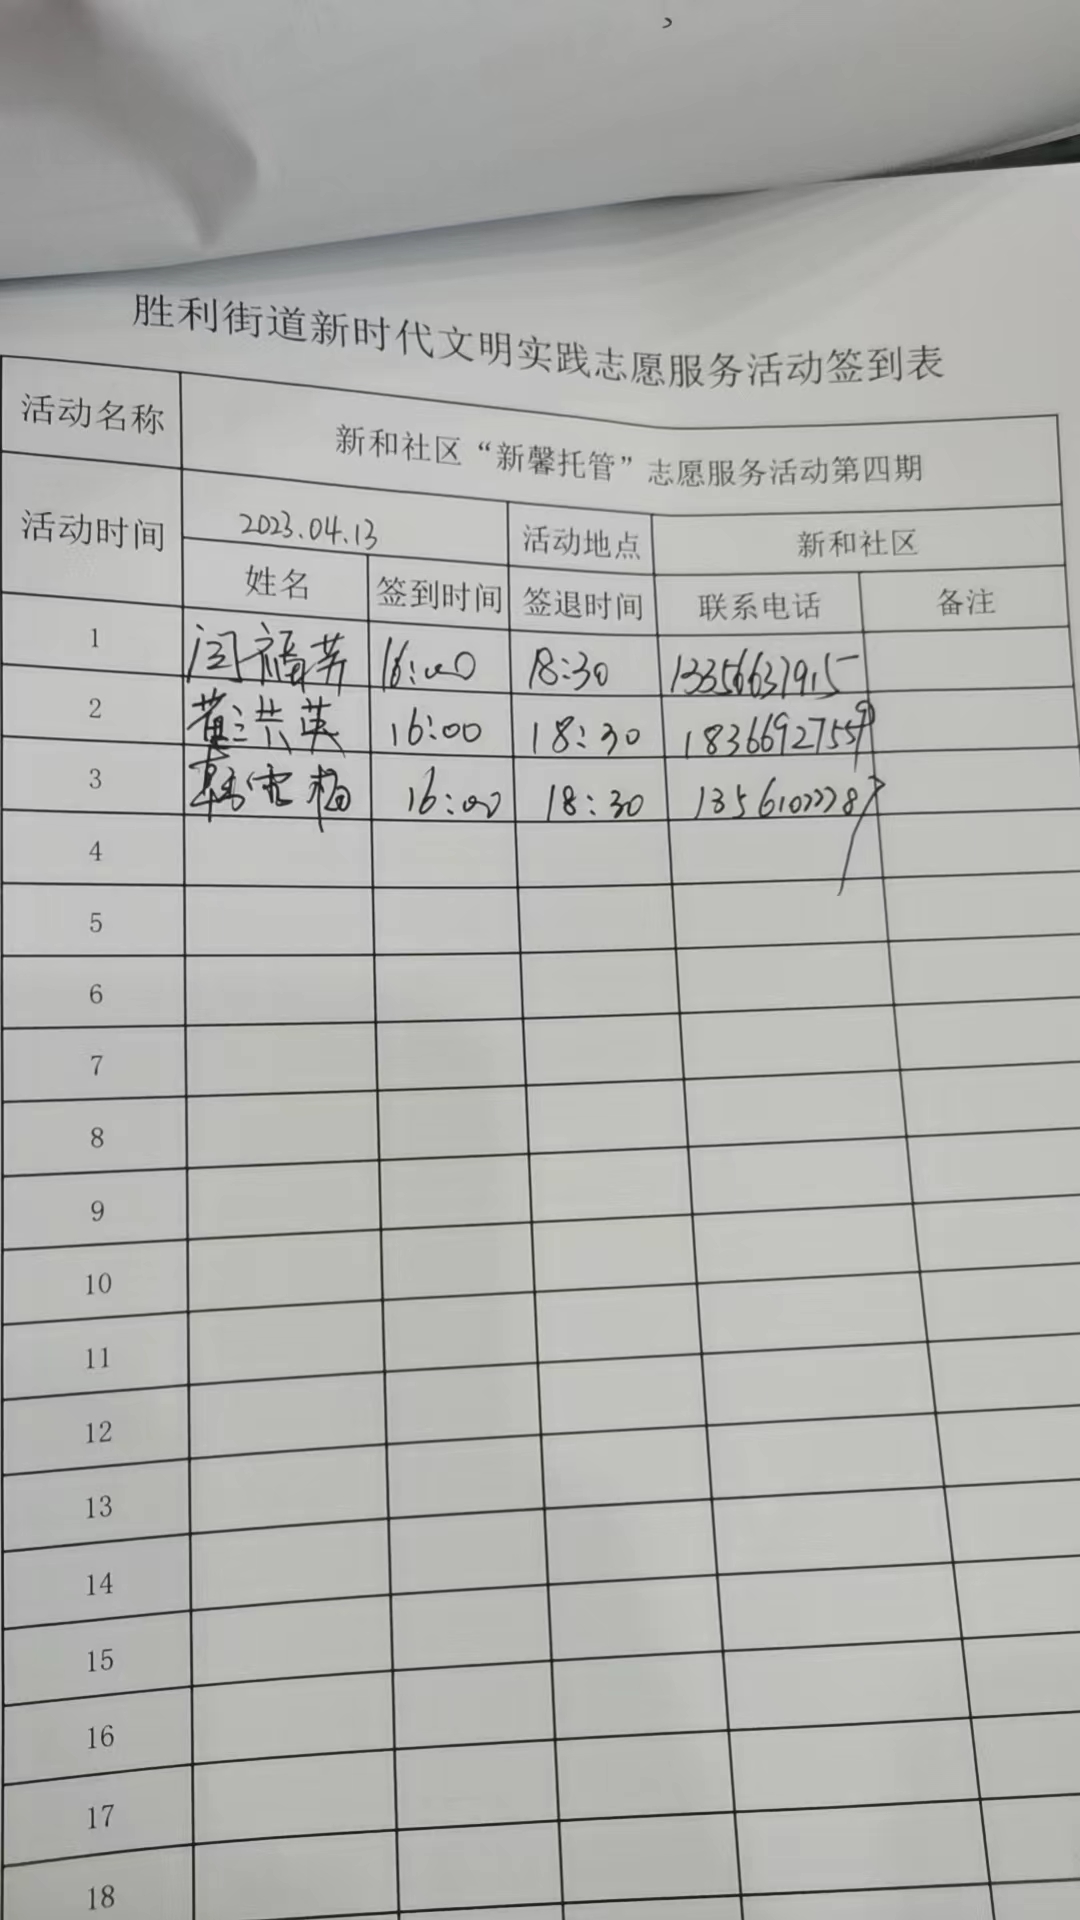 胜利街道新时代文明实践志愿服务活动签到表
活动名称 新和社区“新馨托管”志愿服务活动第四期
活动时间 2023.04.13 活动地点 新和社区
姓名 签到时间 签退时间 联系电话 备注
1 闫福英 16:00 18:30 13356637915
2 黄洪英 16:00 18:30 18366927559
3 韩雪梅 16:00 18:30
4
5
6
7
8
9
10
11
12
13
14
15
16
17
18